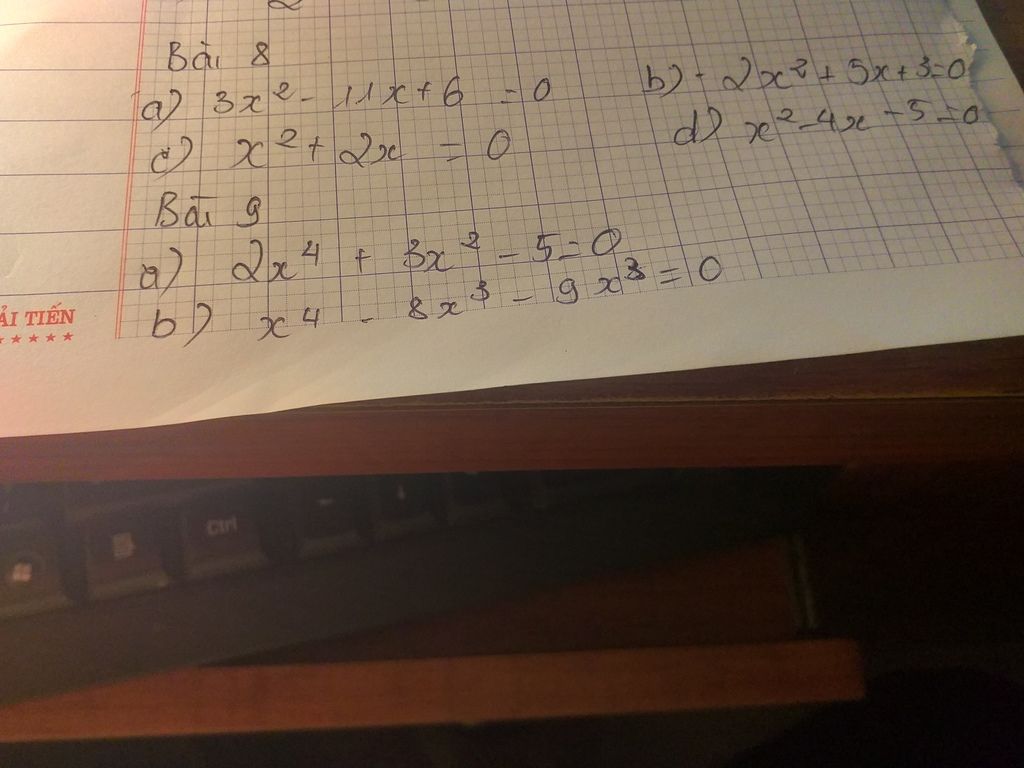 Bài 8
a) 3x² - 11x + 6 = 0 b) - 2x² + 5x + 3 = 0
c) x² + 2x = 0 d) x² - 4x - 5 = 0
Bài 9
a) 2x⁴ + 3x² - 5 = 0
b) x⁴ - 8x³ - 9x³ = 0
ẢI TIẾN
Ctrl